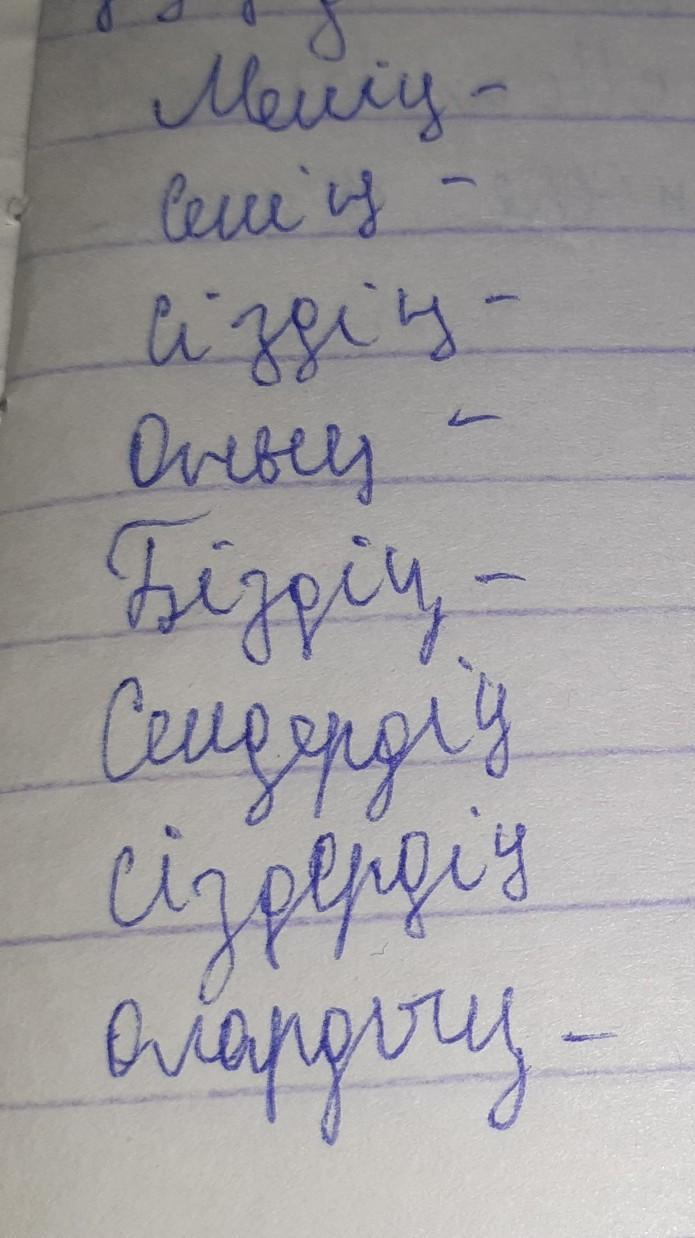 Менің -
сенің -
сіздің -
Оның -
Біздің -
Сендердің
сіздердің
олардың -